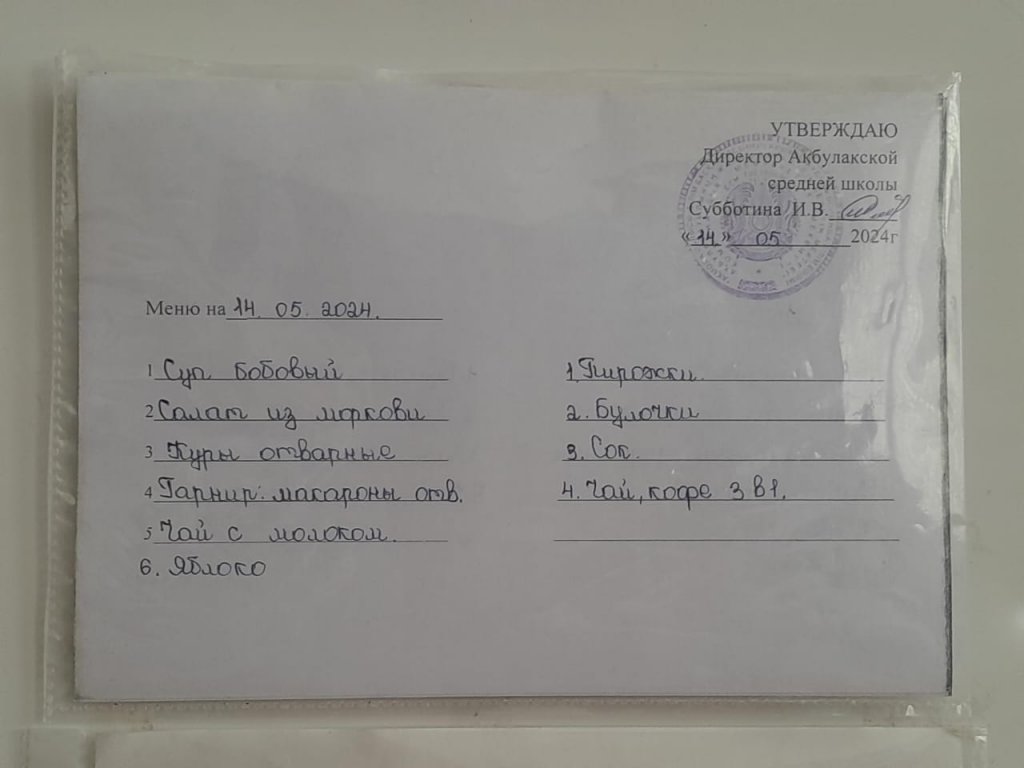 УТВЕРЖДАЮ
Директор Ақбулакской
средней школы
Субботина И.В.
«14» 05 2024г
Меню на 14. 05. 2024.
1 Суп бобовый
2 Салат из моркови
3 Куры отварные
4 Гарнир: макароны отв.
5 Чай с молоком.
6. Яблоко
1. Пирожки.
2. Булочки
3. Сок.
4. Чай, кофе 3 в 1.